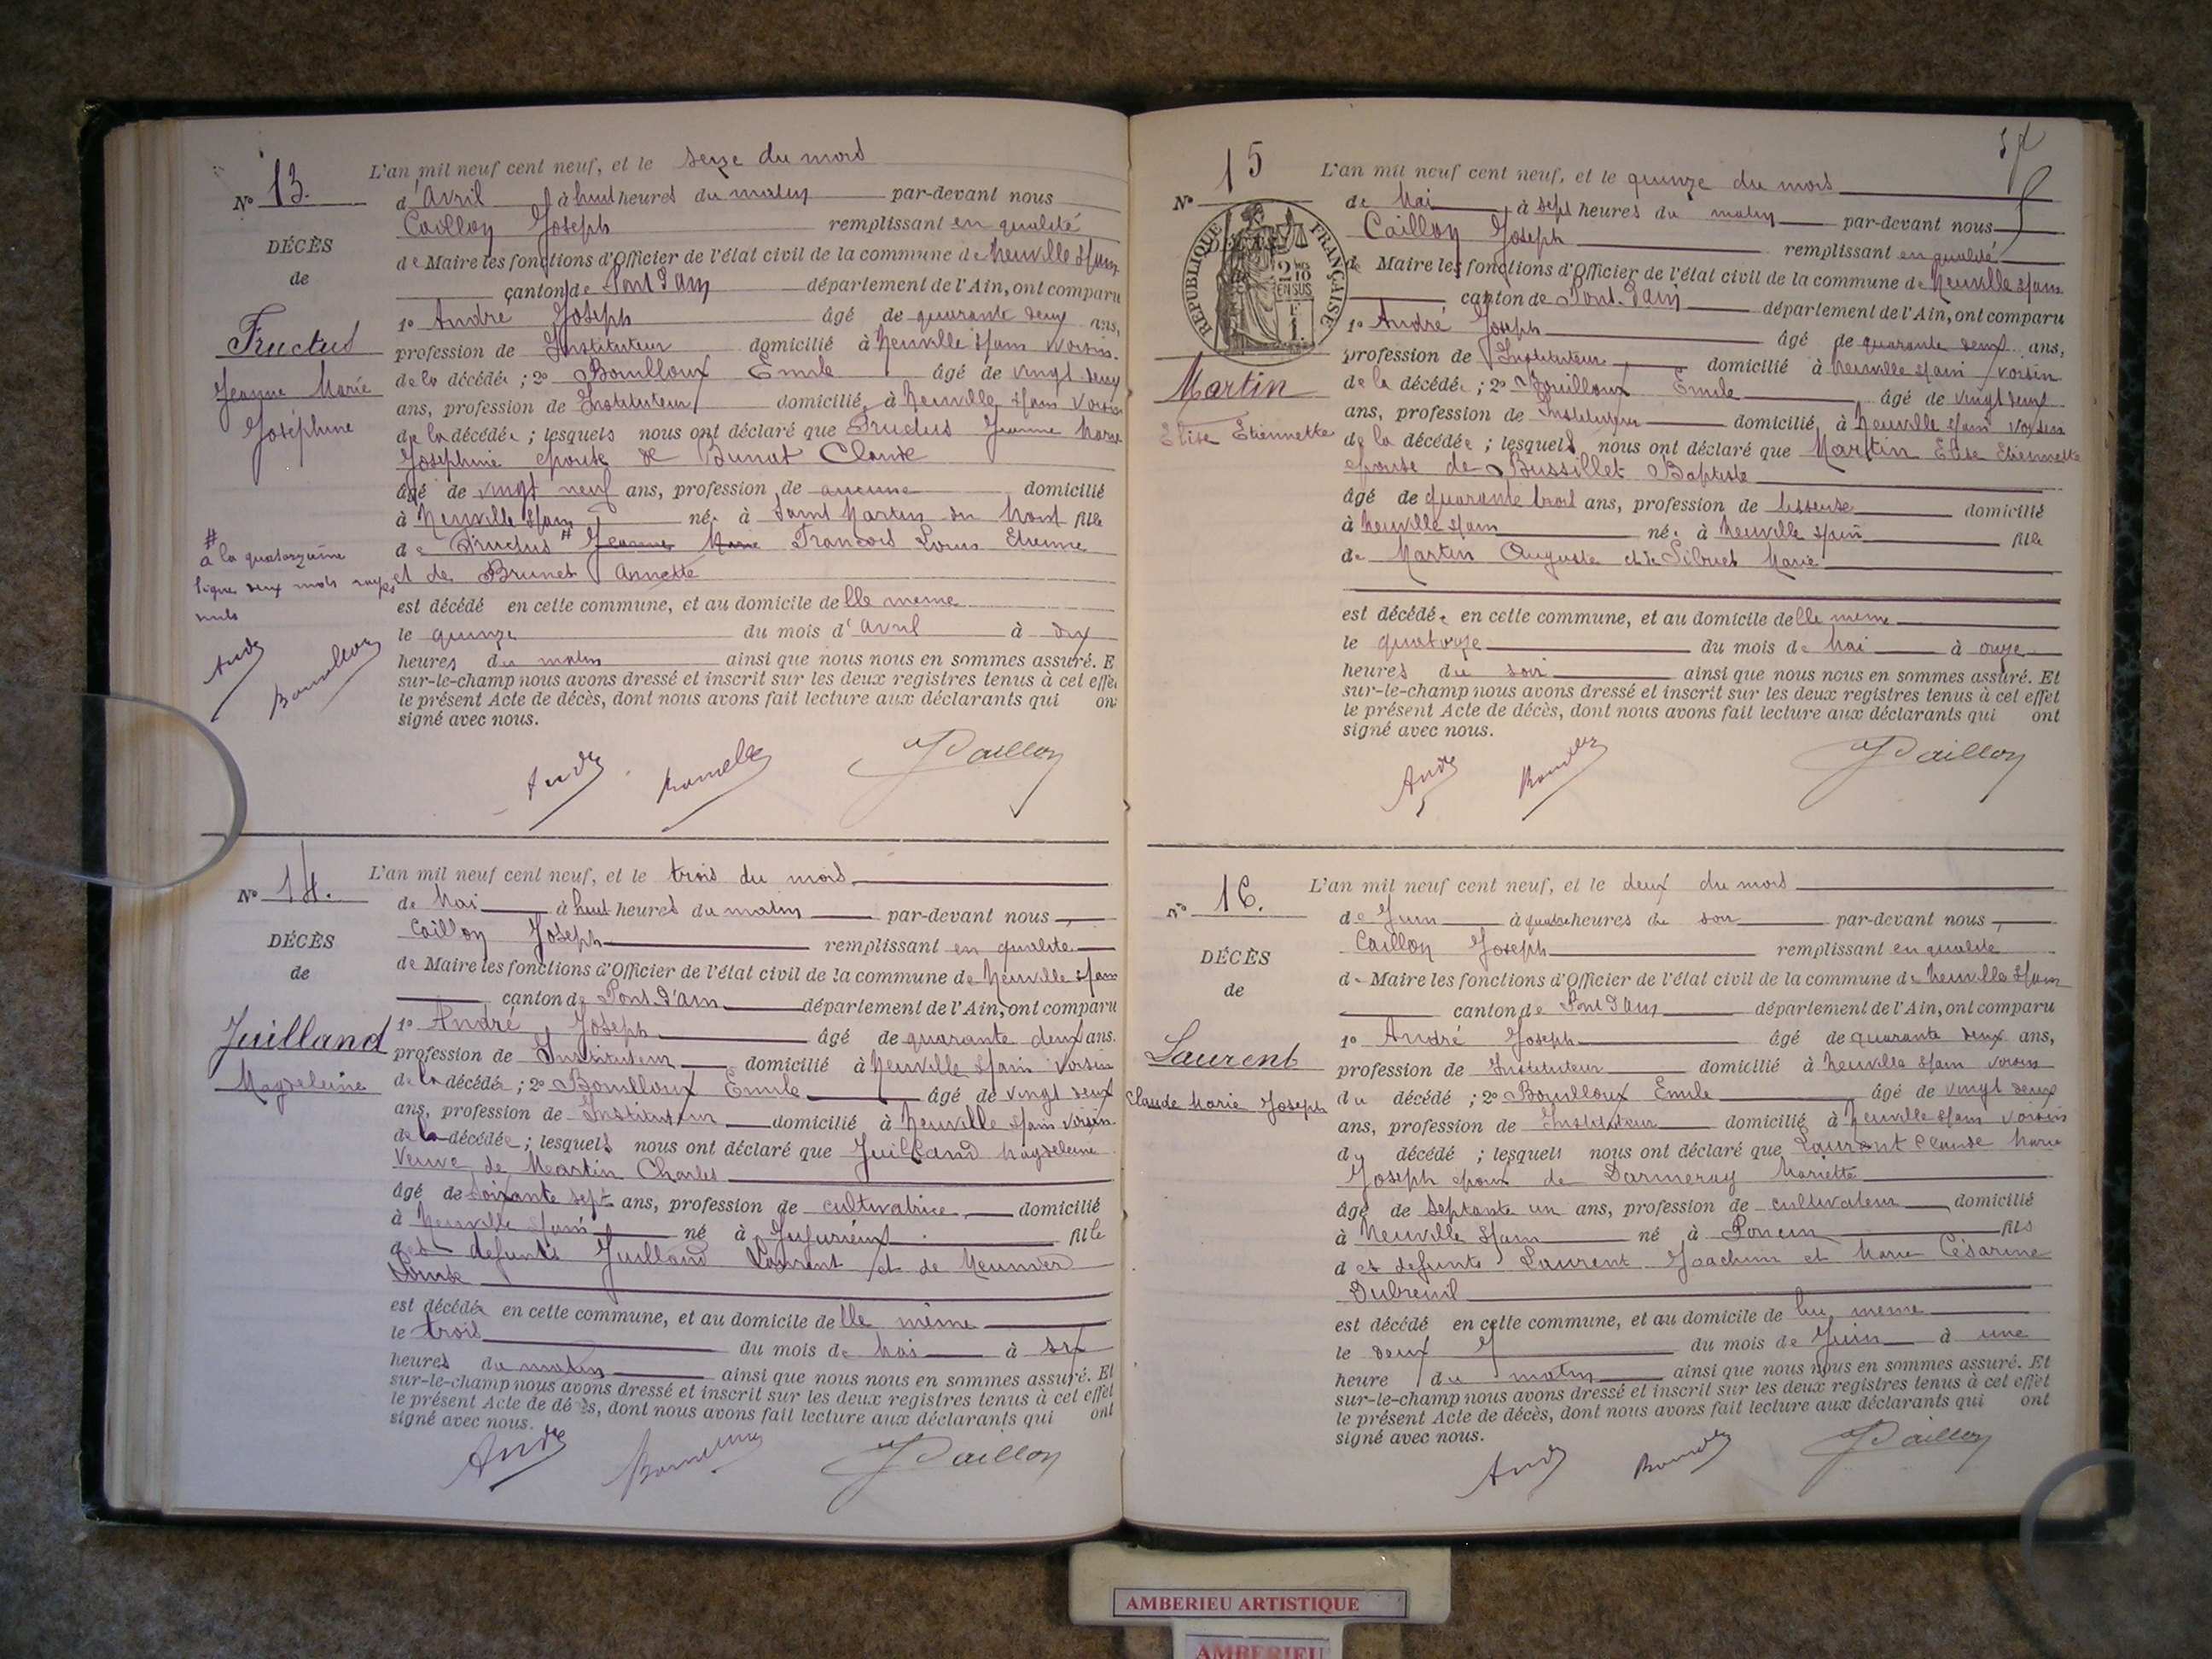 N° 13.
DÉCÈS
de
Fructus
Jeanne Marie
Joséphine
L'an mil neuf cent neuf, et le seize du mois
d'Avril à huit heures du matin par-devant nous
Caillon Joseph remplissant en qualité
de Maire les fonctions d'Officier de l'état civil de la commune de Neuville s/ain
canton de Pont d'Ain département de l'Ain, ont comparu
1° André Joseph âgé de quarante deux ans,
profession de Instituteur domicilié à Neuville s/ain voisin
de la décédée ; 2° Bouilloux Emile âgé de vingt deux
ans, profession de Instituteur domicilié à Neuville s/ain voisin
de la décédée ; lesquels nous ont déclaré que Fructus Jeanne Marie
Joséphine épouse de Claude
âgé de vingt neuf ans, profession de aucune domicilié
à Neuville s/ain née à Saint Martin du Mont fille
de Fructus # Jeanne Marie François Louis Etienne
et de Brunet Annette
est décédé en cette commune, et au domicile de lle même
le quinze du mois d'avril à dix
heures du matin ainsi que nous nous en sommes assuré. E
sur-le-champ nous avons dressé et inscrit sur les deux registres tenus à cet effe
le présent Acte de décès, dont nous avons fait lecture aux déclarants qui on
signé avec nous.
# à la quatorzième
ligne deux mots rayés
nuls
André
Bouilloux
André Bouilloux J Caillon
N° 14.
DÉCÈS
de
Juilland
Magdeleine
L'an mil neuf cent neuf, et le trois du mois
de Mai à huit heures du matin par-devant nous
Caillon Joseph remplissant en qualité
de Maire les fonctions d'Officier de l'état civil de la commune de Neuville s/ain
canton de Pont d'Ain département de l'Ain, ont comparu
1° André Joseph âgé de quarante deux ans.
profession de Instituteur domicilié à Neuville s/ain voisin
de la décédée ; 2° Bouilloux Emile âgé de vingt deux
ans, profession de Instituteur domicilié à Neuville s/ain voisin
de la décédée ; lesquels nous ont déclaré que Juilland Magdeleine
Veuve de Martin Charles
âgé de soixante sept ans, profession de cultivatrice domicilié
à Neuville s/ain né à Jujurieux fille
des defunts Juilland Laurent et de Meunier
Louise
est décédée en cette commune, et au domicile de lle même
le trois du mois de Mai à six
heures du matin ainsi que nous nous en sommes assuré. Et
sur-le-champ nous avons dressé et inscrit sur les deux registres tenus à cet effet
le présent Acte de décès, dont nous avons fait lecture aux déclarants qui ont
signé avec nous.
André Bouilloux J Caillon
N° 15
RÉPUBLIQUE FRANÇAISE
2 DMES
10
EN SUS
Martin
Elise Etiennette
L'an mil neuf cent neuf, et le quinze du mois
de Mai à sept heures du matin par-devant nous
Caillon Joseph remplissant en qualité
de Maire les fonctions d'Officier de l'état civil de la commune de Neuville s/ain
canton de Pont-d'ain département de l'Ain, ont comparu
1° André Joseph âgé de quarante deux ans,
profession de Instituteur domicilié à Neuville s/ain voisin
de la décédée ; 2° Bouilloux Emile âgé de vingt deux
ans, profession de Instituteur domicilié à Neuville s/ain voisin
de la décédée ; lesquels nous ont déclaré que Martin Elise Etiennette
épouse de Bussillet Baptiste
âgé de quarante trois ans, profession de tisseuse domicilié
à Neuville s/ain née à Neuville s/ain fille
de Martin Auguste et de Marie
est décédée en cette commune, et au domicile de lle même
le quatorze du mois de Mai à onze
heures du soir ainsi que nous nous en sommes assuré. Et
sur-le-champ nous avons dressé et inscrit sur les deux registres tenus à cet effet
le présent Acte de décès, dont nous avons fait lecture aux déclarants qui ont
signé avec nous.
André Bouilloux J Caillon
N° 16.
DÉCÈS
de
Laurent
Claude Marie Joseph
L'an mil neuf cent neuf, et le deux du mois
de Juin à quatre heures du soir par-devant nous
Caillon Joseph remplissant en qualité
de Maire les fonctions d'Officier de l'état civil de la commune de Neuville s/ain
canton de Pont d'Ain département de l'Ain, ont comparu
1° André Joseph âgé de quarante deux ans,
profession de Instituteur domicilié à Neuville s/ain voisin
du décédé ; 2° Bouilloux Emile âgé de vingt deux
ans, profession de Instituteur domicilié à Neuville s/ain voisin
du décédé ; lesquels nous ont déclaré que Laurent Claude Marie
Joseph époux de Darmeray Mariette
âgé de septante un ans, profession de cultivateur domicilié
à Neuville s/ain né à Poncin fils
des defunts Laurent Joachim et Marie Césarine
Dubreuil
est décédé en cette commune, et au domicile de lui même
le deux du mois de Juin à une
heure du matin ainsi que nous nous en sommes assuré. Et
sur-le-champ nous avons dressé et inscrit sur les deux registres tenus à cet effet
le présent Acte de décès, dont nous avons fait lecture aux déclarants qui ont
signé avec nous.
André Bouilloux J Caillon
AMBERIEU ARTISTIQUE
AMBERIEU